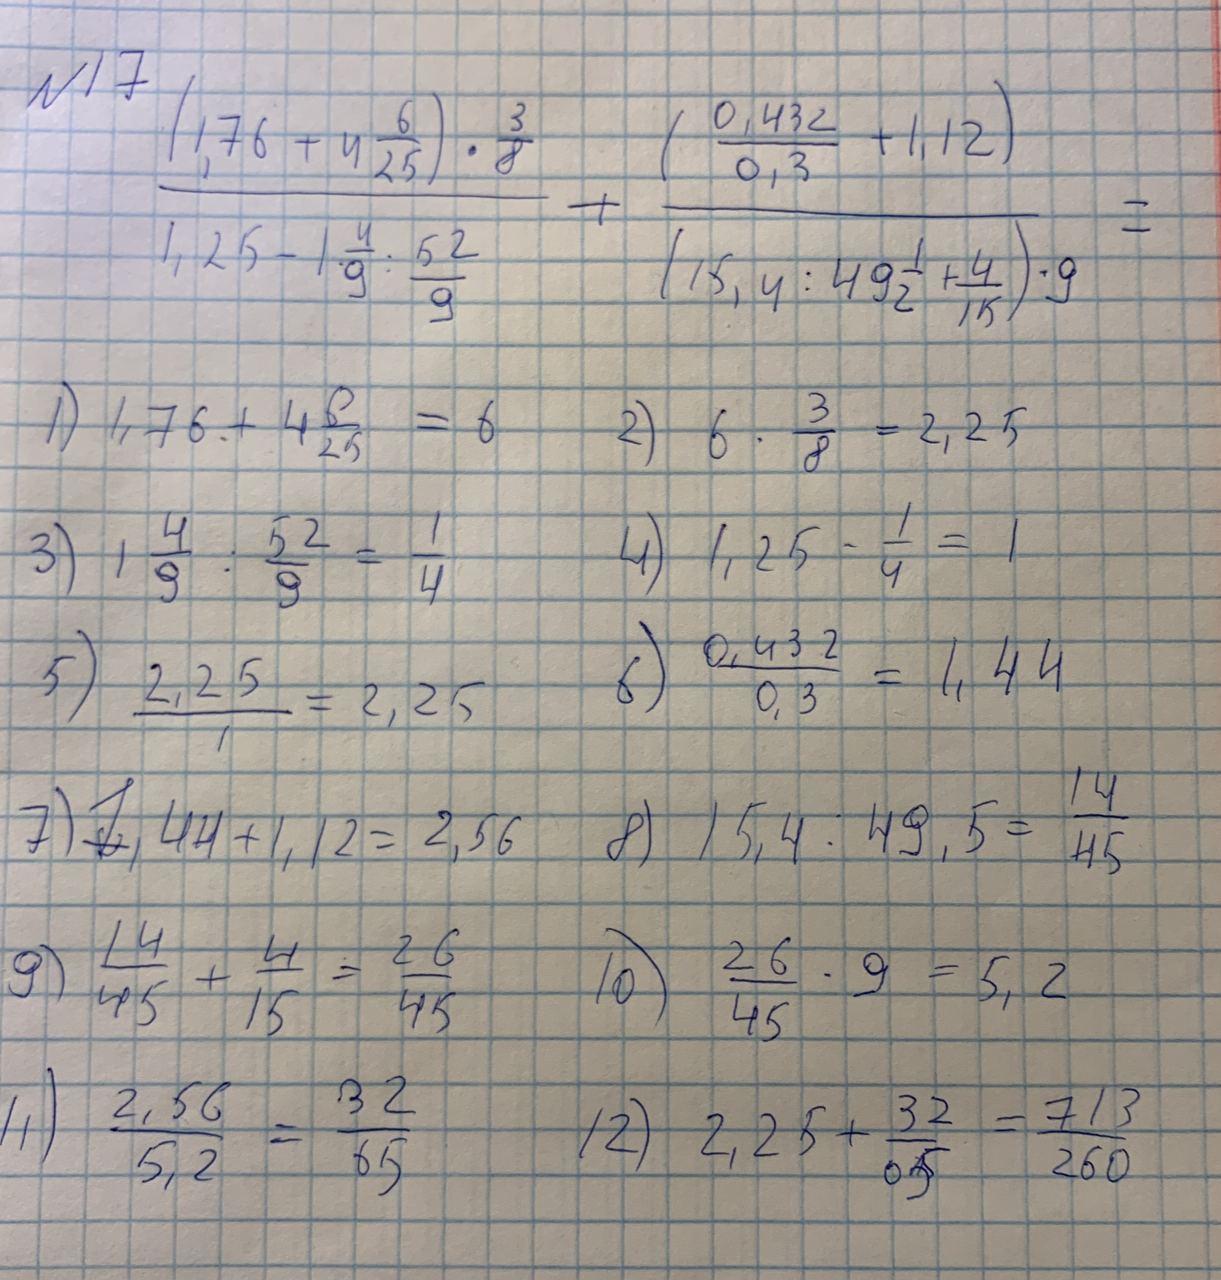 №17
((1,76 + 4 6/25) · 3/8) / (1,25 - 1 4/9 : 52/9) + (0,432/0,3 + 1,12) / ((15,4 : 49 1/2 + 4/15) · 9) =
1) 1,76 + 4 6/25 = 6 2) 6 · 3/8 = 2,25
3) 1 4/9 : 52/9 = 1/4 4) 1,25 - 1/4 = 1
5) 2,25/1 = 2,25 6) 0,432/0,3 = 1,44
7) 1,44 + 1,12 = 2,56 8) 15,4 : 49,5 = 14/45
9) 14/45 + 4/15 = 26/45 10) 26/45 · 9 = 5,2
11) 2,56/5,2 = 32/65 12) 2,25 + 32/65 = 713/260